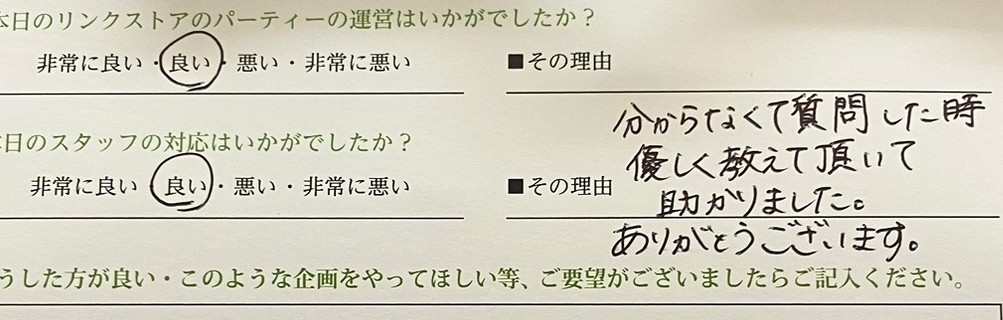 本日のリンクストアのパーティーの運営はいかがでしたか？
非常に良い・良い・悪い・非常に悪い
■その理由
本日のスタッフの対応はいかがでしたか？
非常に良い・良い・悪い・非常に悪い
■その理由
分からなくて質問した時
優しく教えて頂いて
助かりました。
ありがとうございます。
うした方が良い・このような企画をやってほしい等、ご要望がございましたらご記入ください。